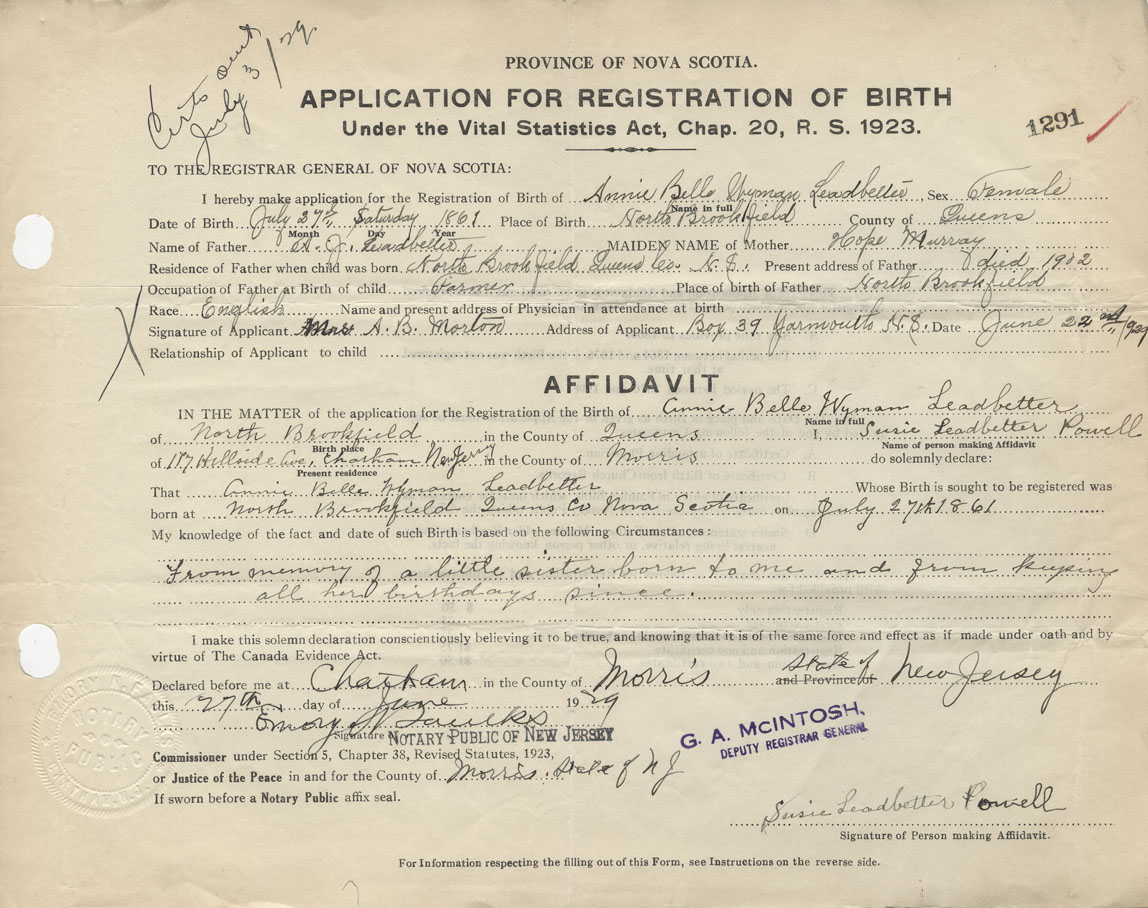 Certs sent
July 3/29
PROVINCE OF NOVA SCOTIA.
APPLICATION FOR REGISTRATION OF BIRTH
Under the Vital Statistics Act, Chap. 20, R. S. 1923.
1291
TO THE REGISTRAR GENERAL OF NOVA SCOTIA:
I hereby make application for the Registration of Birth of Annie Belle Wyman Leadbetter, Sex Female
Name in full
Date of Birth July 27th Saturday 1861 Place of Birth North Brookfield County of Queens
Month Day Year
Name of Father A. J. Leadbetter MAIDEN NAME of Mother Hope Murray
Residence of Father when child was born North Brookfield Queens Co. N.S. Present address of Father died 1902
Occupation of Father at Birth of child Farmer Place of birth of Father North Brookfield
Race English Name and present address of Physician in attendance at birth
Signature of Applicant Mrs A. B. Morton Address of Applicant Box 39 Yarmouth N.S. Date June 22nd/1929
Relationship of Applicant to child
AFFIDAVIT
IN THE MATTER of the application for the Registration of the Birth of Annie Belle Wyman Leadbetter
Name in full
of North Brookfield in the County of Queens I, Susie Leadbetter Powell
Birth place Name of person making Affidavit
of 117 Hillside Ave, Chatham New Jersey in the County of Morris do solemnly declare:
Present residence
That Annie Belle Wyman Leadbetter Whose Birth is sought to be registered was
born at North Brookfield Queens Co Nova Scotia on July 27th 1861
My knowledge of the fact and date of such Birth is based on the following Circumstances:
From memory of a little sister born to me and from keeping
all her birthdays since.
I make this solemn declaration conscientiously believing it to be true, and knowing that it is of the same force and effect as if made under oath and by
virtue of The Canada Evidence Act.
Declared before me at Chatham in the County of Morris and Province of State of New Jersey
this 27th day of June 1929
Signature NOTARY PUBLIC OF NEW JERSEY
G. A. MCINTOSH,
DEPUTY REGISTRAR GENERAL
Commissioner under Section 5, Chapter 38, Revised Statutes, 1923,
or Justice of the Peace in and for the County of Morris. State of N J
If sworn before a Notary Public affix seal.
NOTARY
PUBLIC
Susie Leadbetter Powell
Signature of Person making Affidavit.
For Information respecting the filling out of this Form, see Instructions on the reverse side.